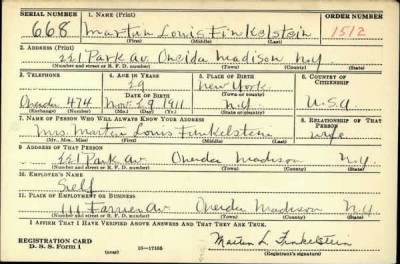 SERIAL NUMBER 1. NAME (Print) ORDER NUMBER
668 Martin Louis Finkelstein 1512
(First) (Middle) (Last)
2. ADDRESS (Print)
221 Park Av. Oneida Madison N.Y.
(Number and street or R. F. D. number) (Town) (County) (State)
3. TELEPHONE 4. AGE IN YEARS 5. PLACE OF BIRTH 6. COUNTRY OF CITIZENSHIP
29 New York
DATE OF BIRTH (Town or county)
Oneida 474 29 1911 N.Y. U.S.A
(Exchange) (Number) (Mo.) (Day) (Yr.) (State or country)
7. NAME OF PERSON WHO WILL ALWAYS KNOW YOUR ADDRESS 8. RELATIONSHIP OF THAT PERSON
Mrs. Martin Louis Finkelstein wife
(Mr., Mrs., Miss) (First) (Middle) (Last)
9. ADDRESS OF THAT PERSON
221 Park Av. Oneida Madison N.Y.
(Number and street or R. F. D. number) (Town) (County) (State)
10. EMPLOYER'S NAME
Self
11. PLACE OF EMPLOYMENT OR BUSINESS
111 Farrier Av Oneida Madison N.Y.
(Number and street or R. F. D. number) (Town) (County) (State)
I AFFIRM THAT I HAVE VERIFIED ABOVE ANSWERS AND THAT THEY ARE TRUE.
REGISTRATION CARD
D. S. S. FORM 1 (over) 16—17105 Martin L Finkelstein
(Registrant's signature)